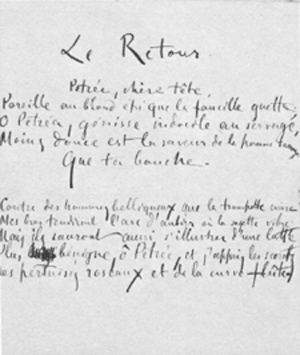 Le Retour.
Pétrée, chère tête,
Pareille au blond épi que la faucille guette
O Pétréa, génisse indocile au servage,
Moins douce est la saveur de la pomme
Que ta bouche.
Contre des hommes belliqueux que la trompette
Mes bras tendirent l'arc d'aubier où la sagette vibre
Mais ils sauront aussi s'illustrer d'une lutte
Plus bénigne, ô Pétrée, et j'appris les secrets
des pertuisés roseaux et de la curve flûte